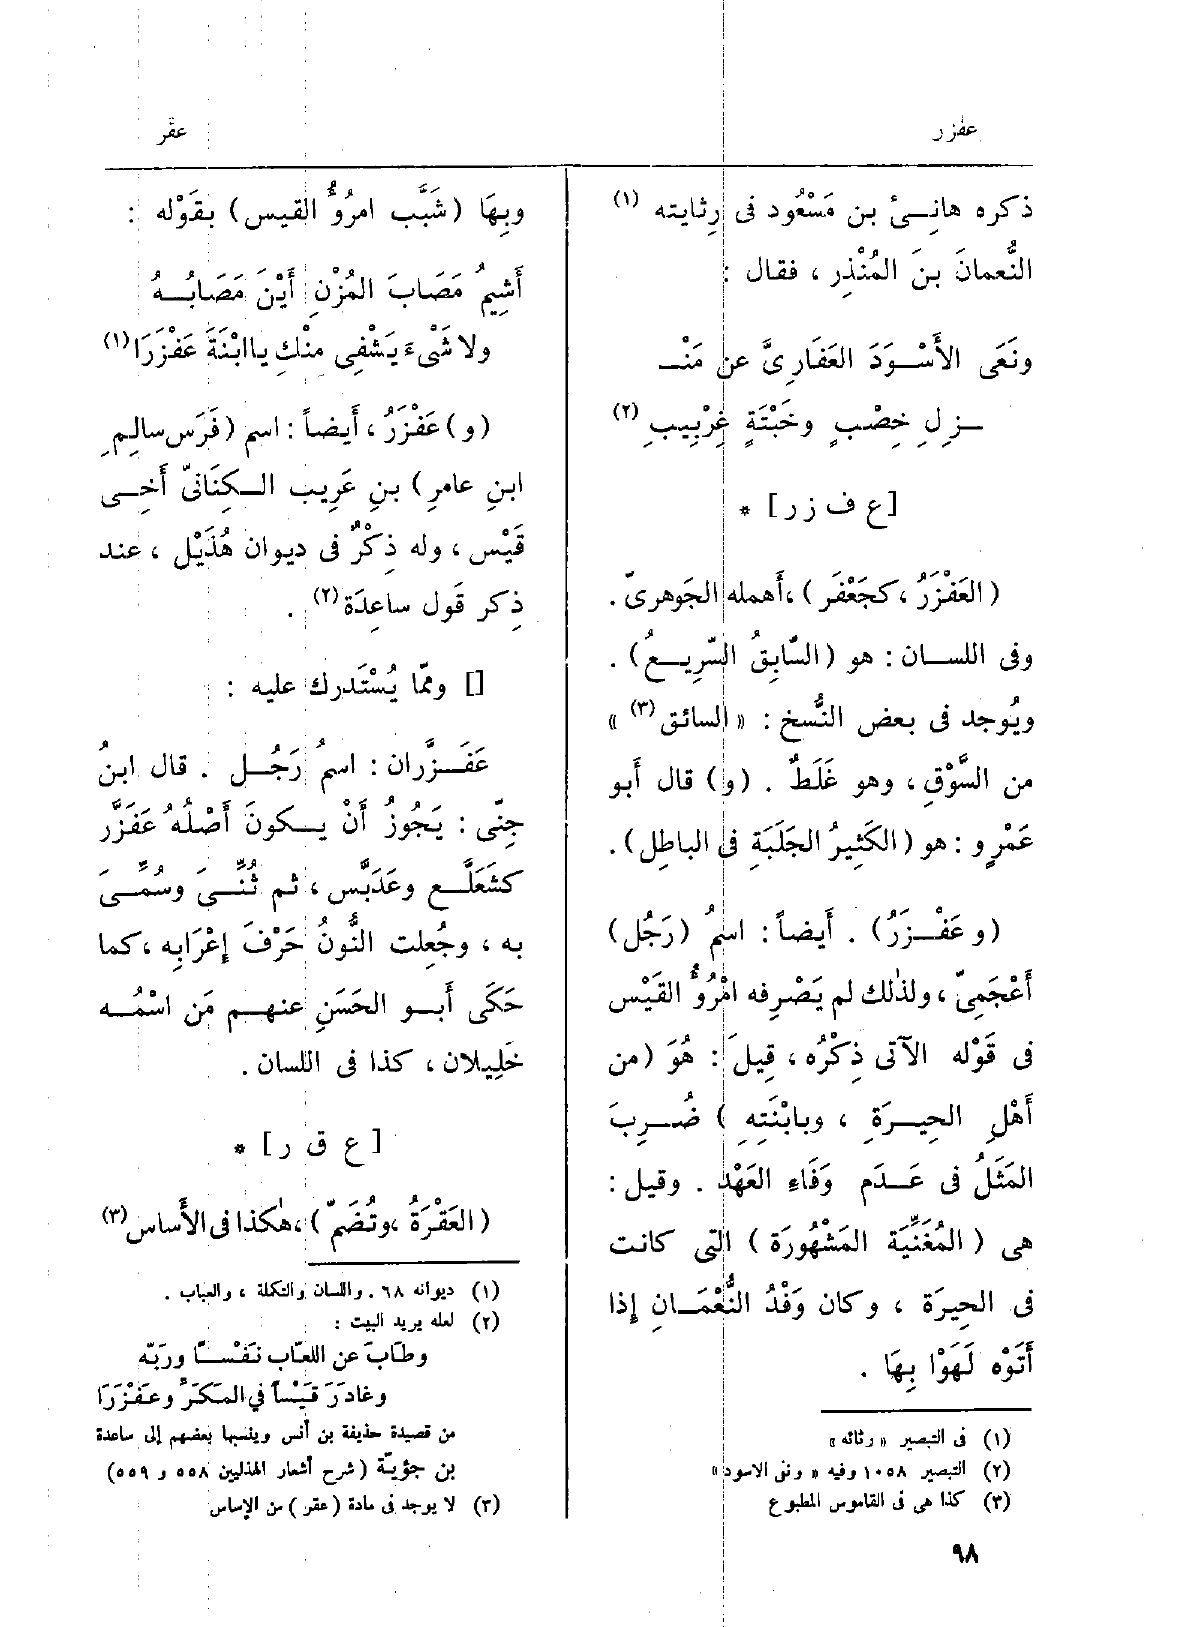 عفزر
عقر
ذكره هانِئُ بن مَسْعُود فى رِثايته (١)
النُّعمانَ بنَ المُنْذِر ، فقال :
ونَعَى الأَسْودَ العَفَارِىَّ عن مَنْـ
ـزِلِ خِصْبٍ وخَبْتَةٍ غِرْبِيبِ (٢)
[ع ف ز ر] *
(العَفْزَرُ ، كجَعْفَر) ، أَهمله الجَوهرىّ .
وفى اللسان : هو (السّابِقُ السَّرِيعُ) .
ويُوجد فى بعض النُّسخ : « السائق (٣) »
من السَّوْقِ ، وهو غَلَطٌ . (و) قال أَبو
عَمْرٍو : هو (الكَثِيرُ الجَلَبَةِ فى الباطِل) .
(و عَفْزَرُ) . أَيضاً : اسمُ (رَجُل)
أَعْجَمِىّ ، ولذٰلك لم يَصْرِفه امْرُؤُ القَيْس
فى قَوْله الآتى ذِكْرُه ، قِيلَ : هُوَ (من
أَهْلِ الحِيرَةِ ، وبابْنَتِهِ ) ضُرِبَ
المَثَلُ فى عَدَم وَفَاءِ العَهْد . وقيل :
هى ( المُغَنِّيَة المَشْهُورَة ) التى كانت
فى الحِيرَة ، وكان وَفْدُ النُّعْمَانِ إِذا
أَتَوْه لَهَوْا بِهَا .
(١) فى التبصير « رثائه »
(٢) التبصير ١٠٥٨ وفيه « ونى الاسود »
(٣) كذا هى فى القاموس المطبوع
وبِهَا (شَبَّب امرُؤُ القيس) بقَوْله :
أَشِيمُ مَصَابَ المُزْنِ أَيْنَ مَصَابُهُ
ولا شَىْءَ يَشْفِى مِنْكِ ياابْنَةَ عَفْزَرَا (١)
(و) عَفْزَرُ ، أَيضاً : اسم (فَرَس سالِمِ
ابنِ عامرِ ) بنِ عَرِيب الكِنَانىّ أَخِى
قَيْس ، وله ذِكْرٌ فى ديوان هُذَيْل ، عند
ذِكر قَول ساعِدَة (٢) .
[] وممّا يُسْتَدرك عليه :
عَفَزَّران : اسمُ رَجُل . قال ابنُ
جِنِّى : يَجُوزُ أَنْ يكونَ أَصْلُهُ عَفَزَّر
كشَعَلَّع وعَدَبَّس ، ثم ثُنِّىَ وسُمِّىَ
به ، وجُعِلت النُّونُ حَرْفَ إِعْرَابِه ، كما
حَكَى أَبو الحَسَنِ عنهم مَن اسْمُه
خَلِيلان ، كذا فى اللسان .
[ع ق ر] *
(العَقْرَةُ ، وتُضَمّ ) ، هٰكذا فى الأَساس (٣)
(١) ديوانه ٦٨ . واللسان والتكلة ، والعباب .
(٢) لعله يريد البيت :
وطَابَ عن اللعَّاب نَفْسًا ورَبِّه
وغادَرَ قَيْساً في المَكَرِّ وعَفْزَرَا
من قصيدة حذيفة بن أنس وينسبها بعضهم إلى ساعدة
بن جؤيّة (شرح أشعار الهذليين ٥٥٨ و ٥٥٩)
(٣) لا يوجد فى مادة (عقر ) من الإساس
٩٨